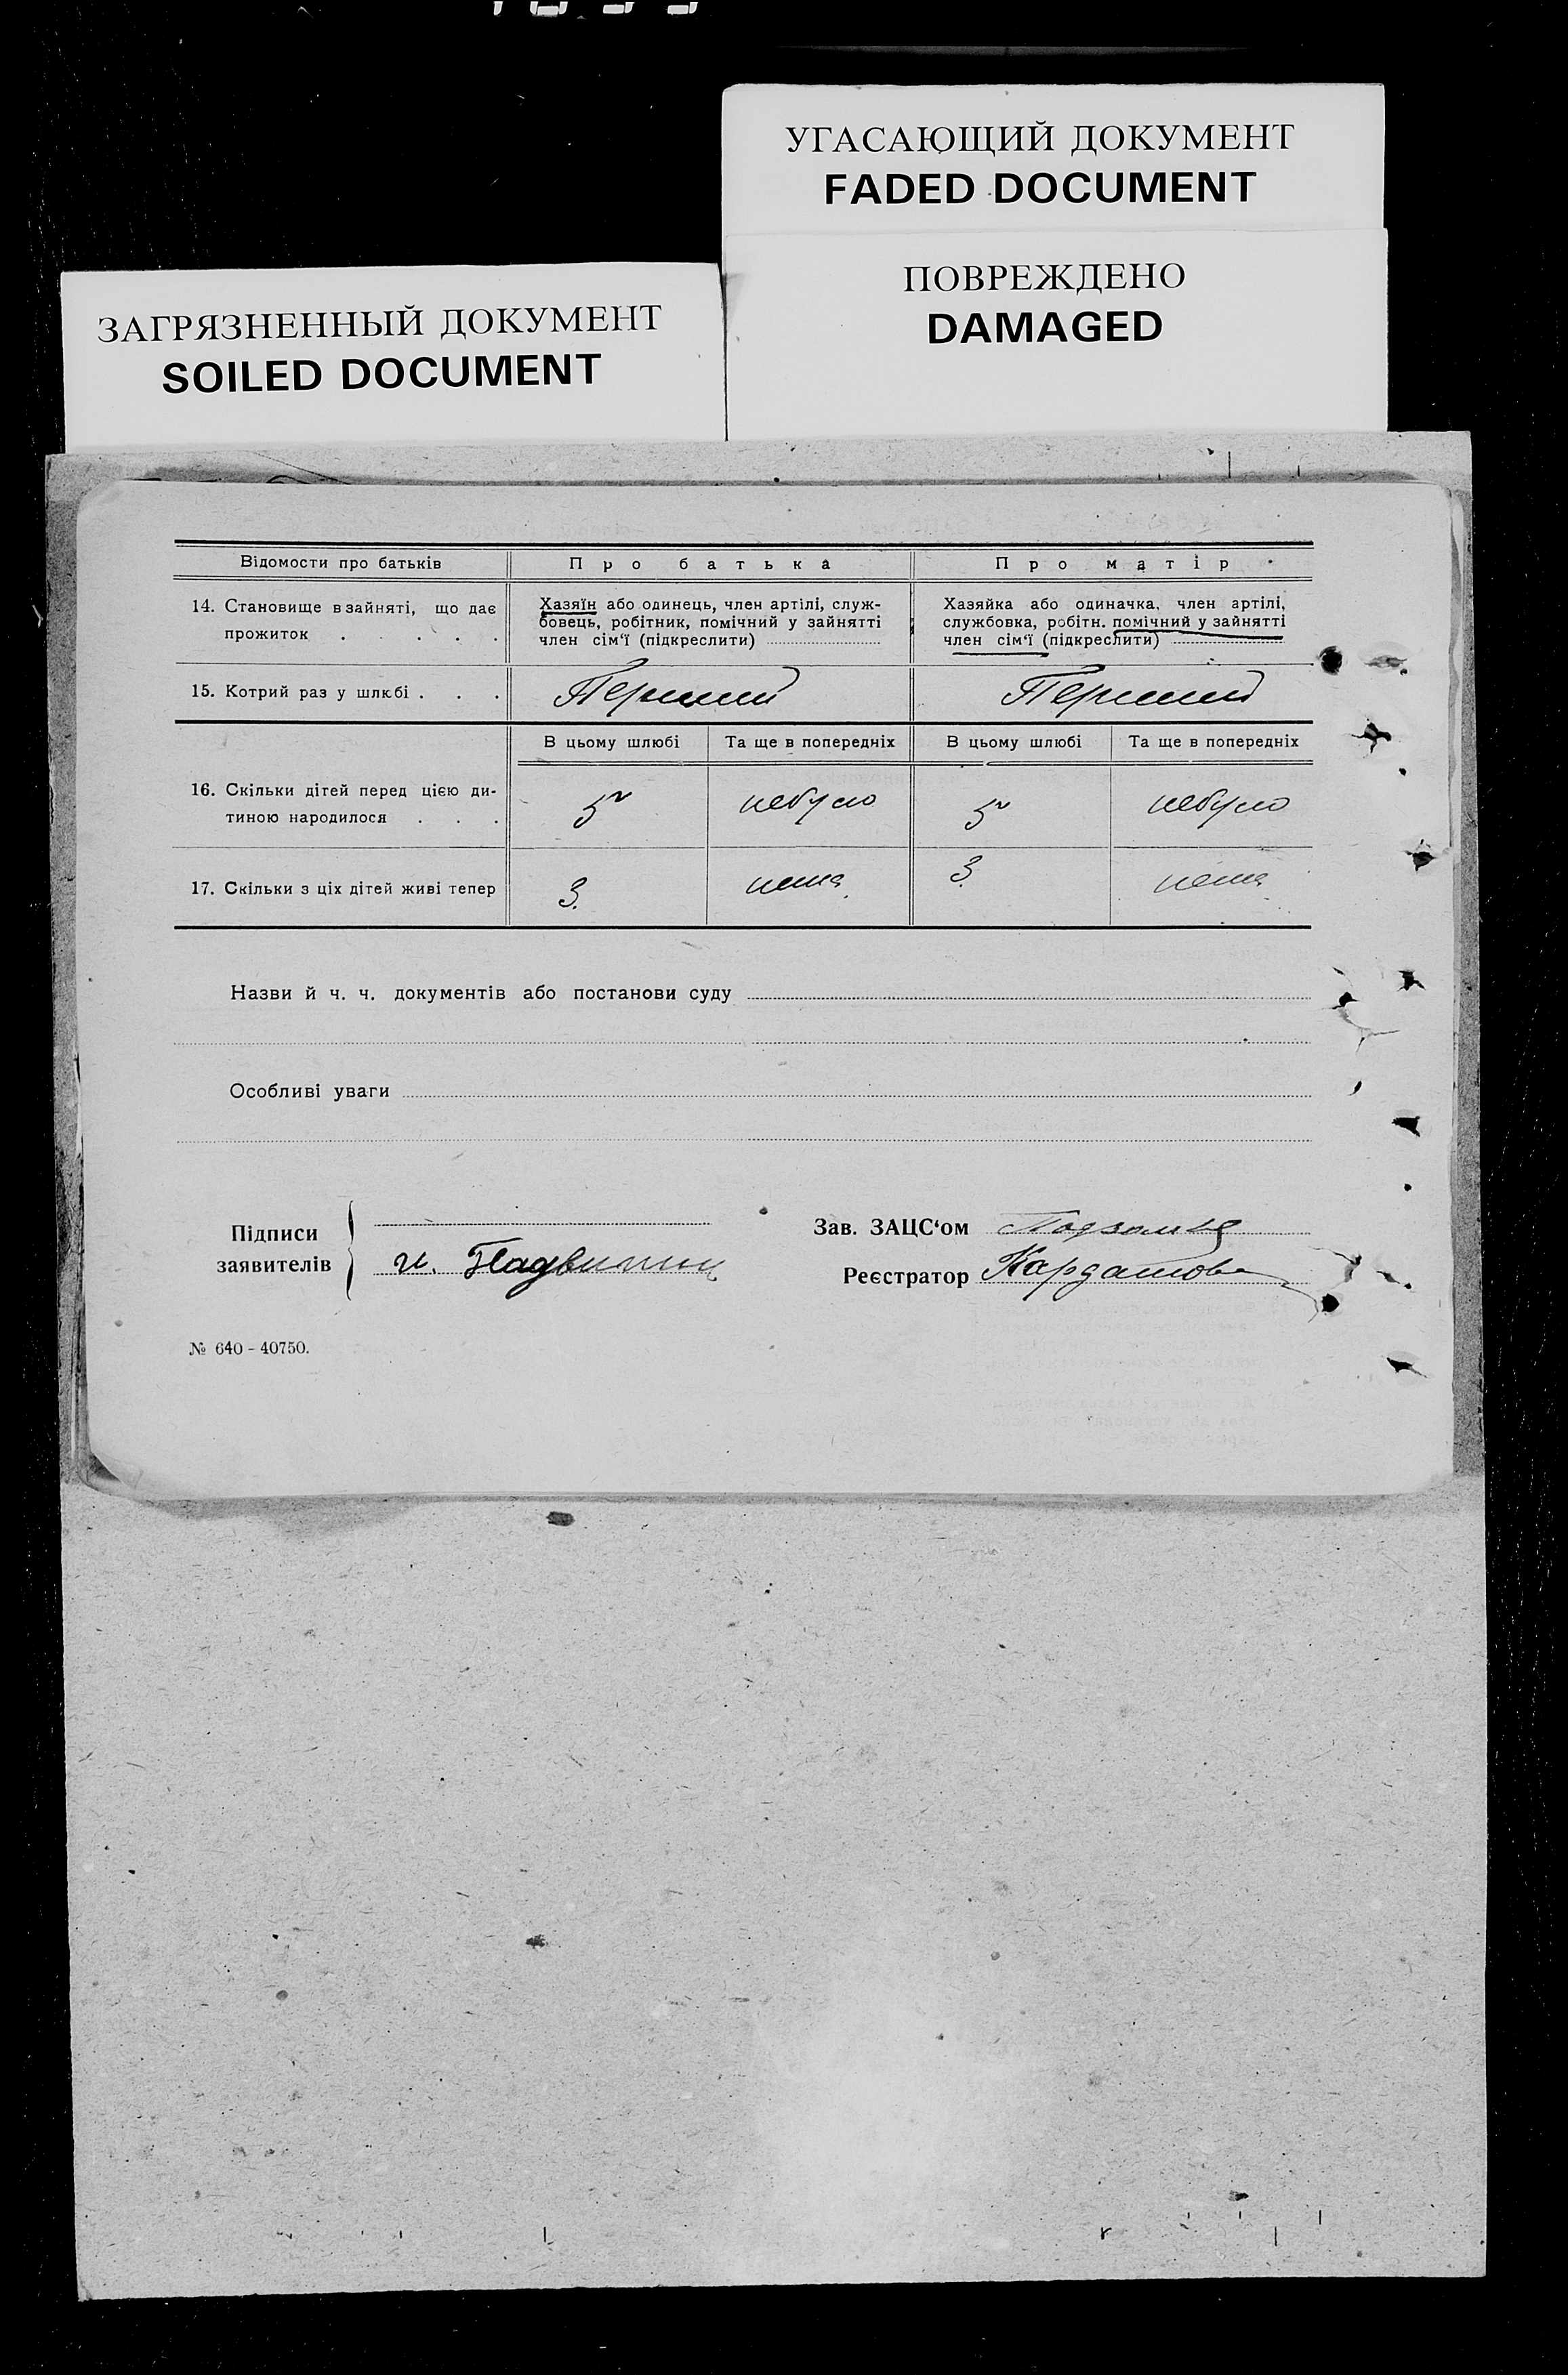 УГАСАЮЩИЙ ДОКУМЕНТ
FADED DOCUMENT
ПОВРЕЖДЕНО
DAMAGED
ЗАГРЯЗНЕННЫЙ ДОКУМЕНТ
SOILED DOCUMENT
Відомости про батьків
Про батька
Про матір
14. Становище в зайняті, що дає
прожиток . . . . .
Хазяїн або одинець, член артілі, служ-
бовець, робітник, помічний у зайнятті
член сім‘ї (підкреслити)
Хазяйка або одиначка, член артілі,
службовка, робітн. помічний у зайнятті
член сім‘ї (підкреслити)
15. Котрий раз у шлюбі . . .
Перший
Перший
В цьому шлюбі
Та ще в попередніх
В цьому шлюбі
Та ще в попередніх
16. Скільки дітей перед цією ди-
тиною народилося . . .
5
небуло
5
небуло
17. Скільки з ціх дітей живі тепер
3.
нема
3.
нема
Назви й ч. ч. документів або постанови суду
Особливі уваги
Підписи
заявителів
и.
Зав. ЗАЦС‘ом
Реєстратор
№ 640 - 40750.